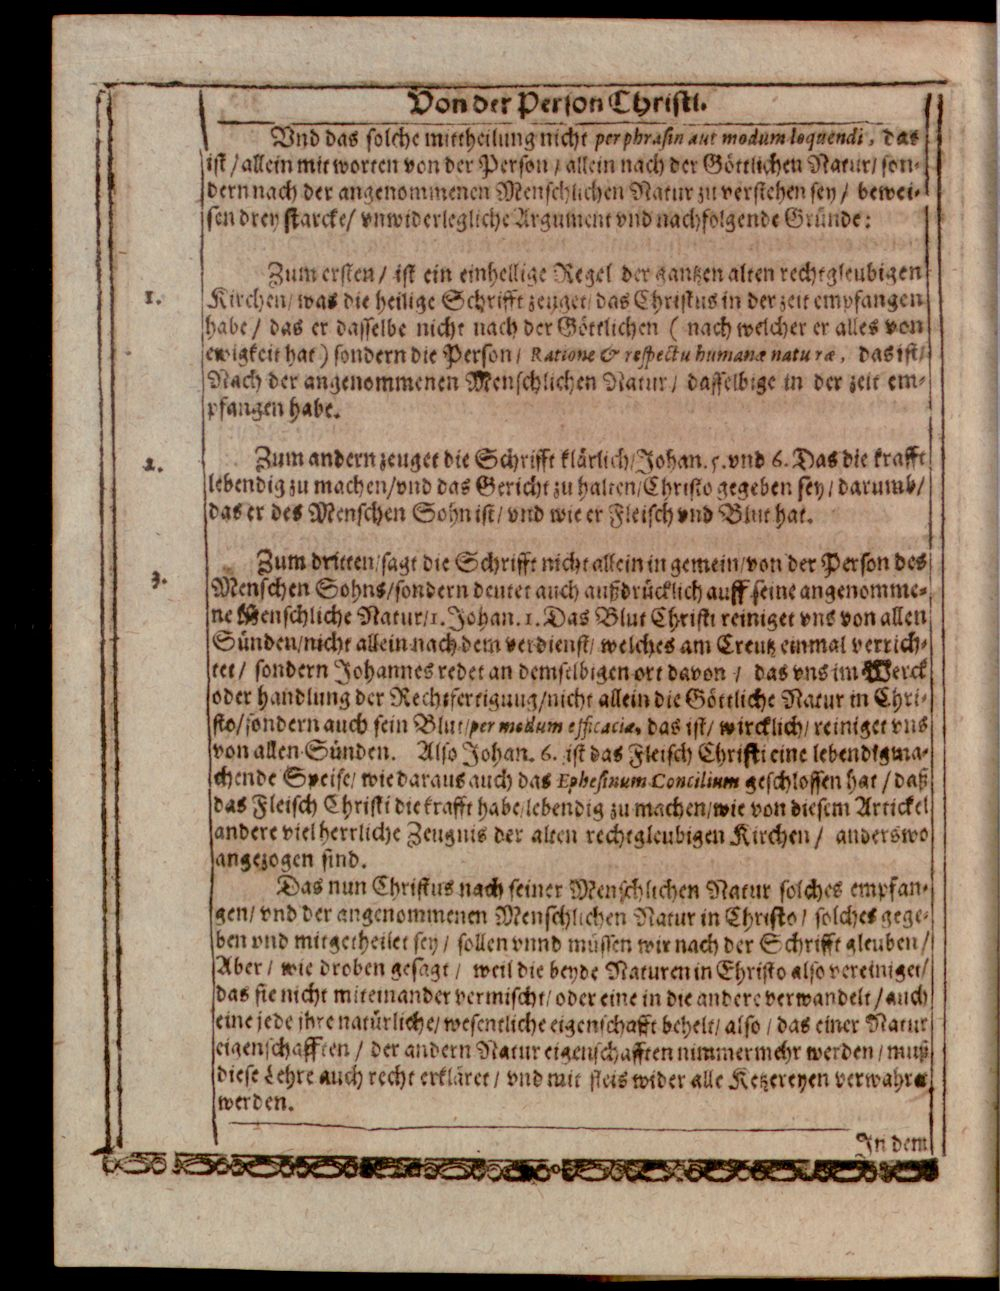 Von der Person Christi.
Vnd das solche mittheilung nicht per phrasin aut modum loquendi, das
ist / allein mit worten von der Person / allein nach der Göttlichen Natur / son-
dern nach der angenommenen Menschlichen Natur zu verstehen sey / bewei-
sen drey starcke / vnwiderlegliche Argument vnd nachfolgende Gründe:
Zum ersten / ist ein einhellige Regel der gantzen alten rechtgleubigen
1. Kirchen / was die heilige Schrifft zeuget / das Christus in der zeit empfangen
habe / das er dasselbe nicht nach der Göttlichen ( nach welcher er alles von
ewigkeit hat ) sondern die Person / Ratione & respectu humanæ naturæ, das ist /
Nach der angenommenen Menschlichen Natur / dasselbige in der zeit em-
pfangen habe.
2. Zum andern zeuget die Schrifft klärlich / Johan. 5. vnd 6. Das die krafft
lebendig zu machen / vnd das Gericht zu halten / Christo gegeben sey / darumb /
das er des Menschen Sohn ist / vnd wie er Fleisch vnd Blut hat.
3. Zum dritten / sagt die Schrifft nicht allein in gemein / von der Person des
Menschen Sohns / sondern deutet auch außdrücklich auff seine angenomme-
ne Menschliche Natur / 1. Johan. 1. Das Blut Christi reiniget vns von allen
Sünden / nicht allein nach dem verdienst / welches am Creutz einmal verrich-
tet / sondern Johannes redet an demselbigen ort davon / das vns im Werck
oder handlung der Rechtfertigung / nicht allein die Göttliche Natur in Chri-
sto / sondern auch sein Blut / per modum efficaciæ, das ist / wircklich / reiniget vns
von allen Sünden. Also Johan. 6. ist das Fleisch Christi eine lebendigma-
chende Speise / wie daraus auch das Ephesinum Concilium geschlossen hat / daß
das Fleisch Christi die krafft habe / lebendig zu machen / wie von diesem Artickel
andere viel herrliche Zeugnis der alten rechtgleubigen Kirchen / anderswo
angezogen sind.
Das nun Christus nach seiner Menschlichen Natur solches empfan-
gen / vnd der angenommenen Menschlichen Natur in Christo / solches gege-
ben vnd mitgetheilet sey / sollen vnnd müssen wir nach der Schrifft gleuben /
Aber / wie droben gesagt / weil die beyde Naturen in Christo also vereiniget /
das sie nicht miteinander vermischt / oder eine in die andere verwandelt / auch
eine jede jhre natürliche / wesentliche eigenschafft behelt / also / das einer Natur
eigenschafften / der andern Natur eigenschafften nimmermehr werden / muß
diese Lehre auch recht erkläret / vnd mit fleis wider alle Ketzereyen verwahret
werden.
In dem